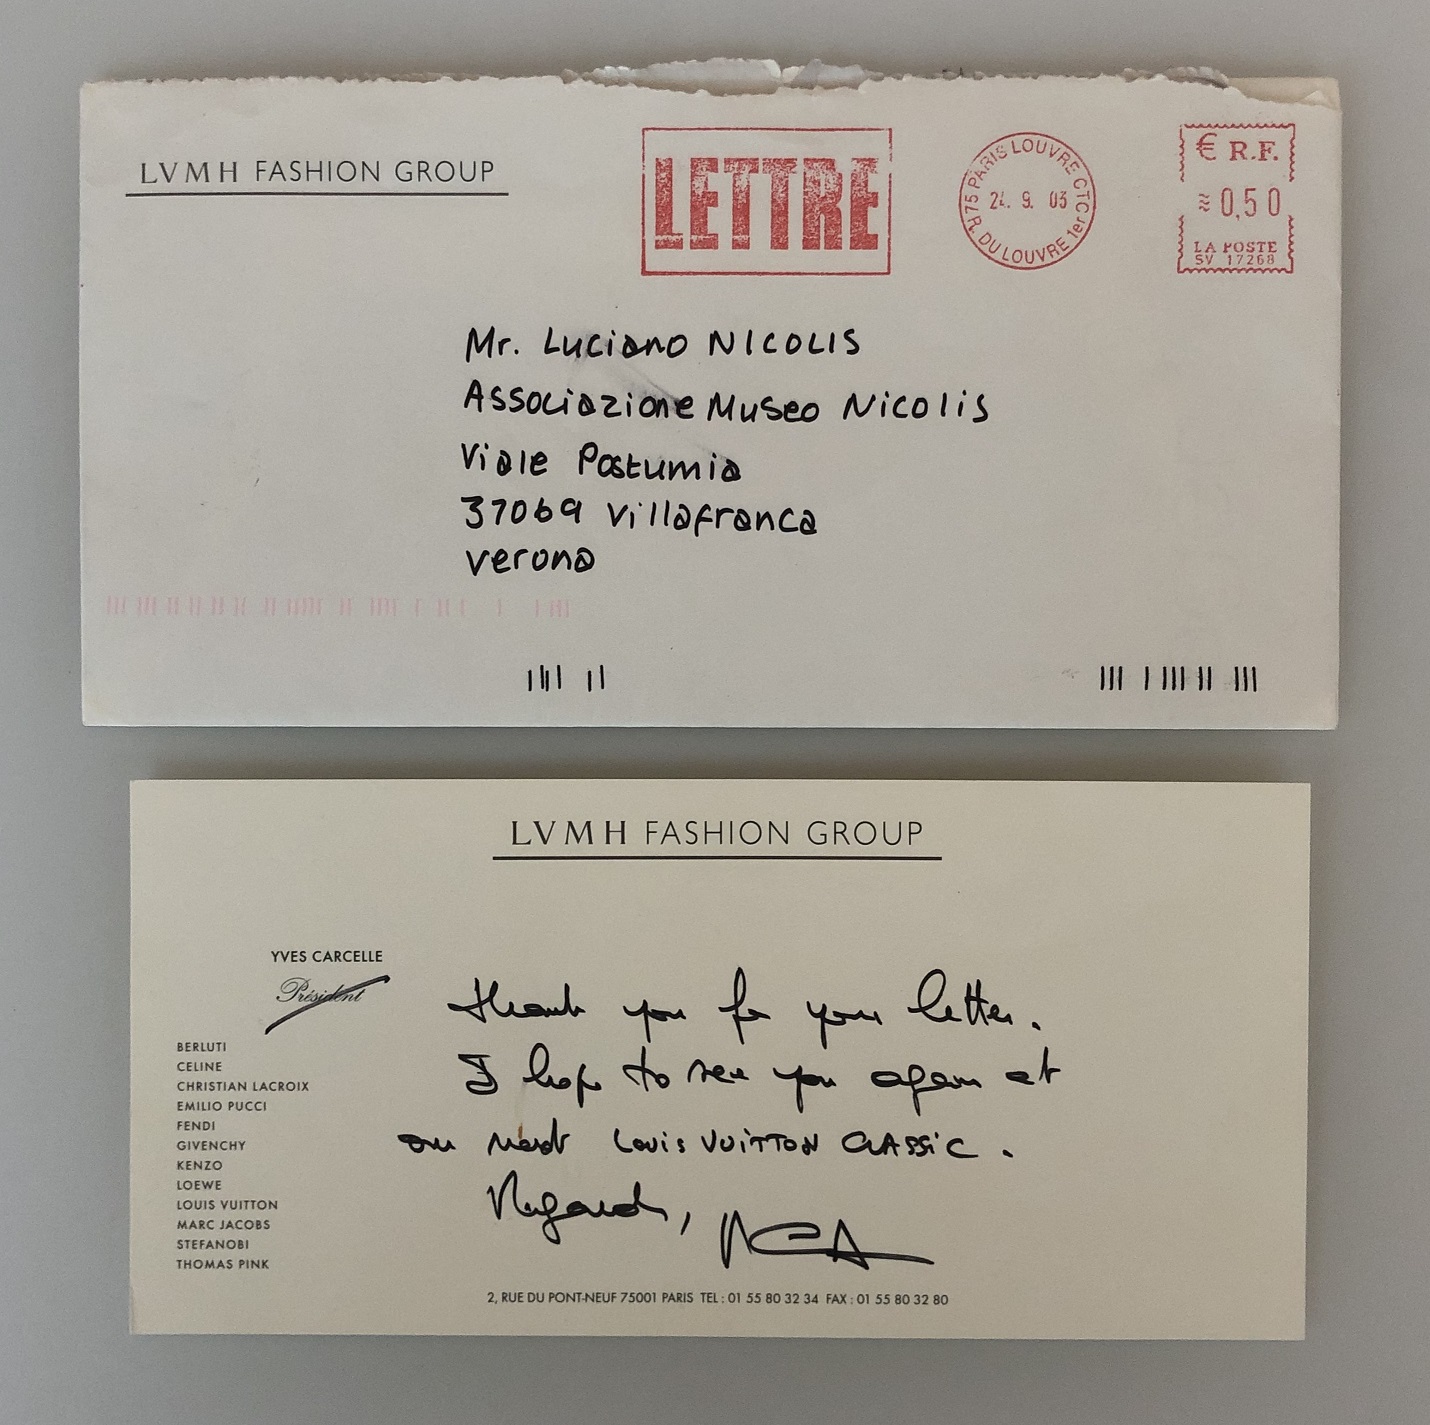 LVMH FASHION GROUP
LETTRE
75 PARIS LOUVRE CTC
24. 9. 03
R. DU LOUVRE 1er
€ R.F.
≈ 0,50
LA POSTE
SV 17268
Mr. Luciano NICOLIS
Associazione Museo Nicolis
Viale Postumia
37069 Villafranca
Verona
LVMH FASHION GROUP
YVES CARCELLE
Président
BERLUTI
CELINE
CHRISTIAN LACROIX
EMILIO PUCCI
FENDI
GIVENCHY
KENZO
LOEWE
LOUIS VUITTON
MARC JACOBS
STEFANOBI
THOMAS PINK
Thank you for your letter.
I hope to see you again at
our next Louis VUITTON CLASSIC.
Regards,
2, RUE DU PONT-NEUF 75001 PARIS TEL : 01 55 80 32 34 FAX : 01 55 80 32 80